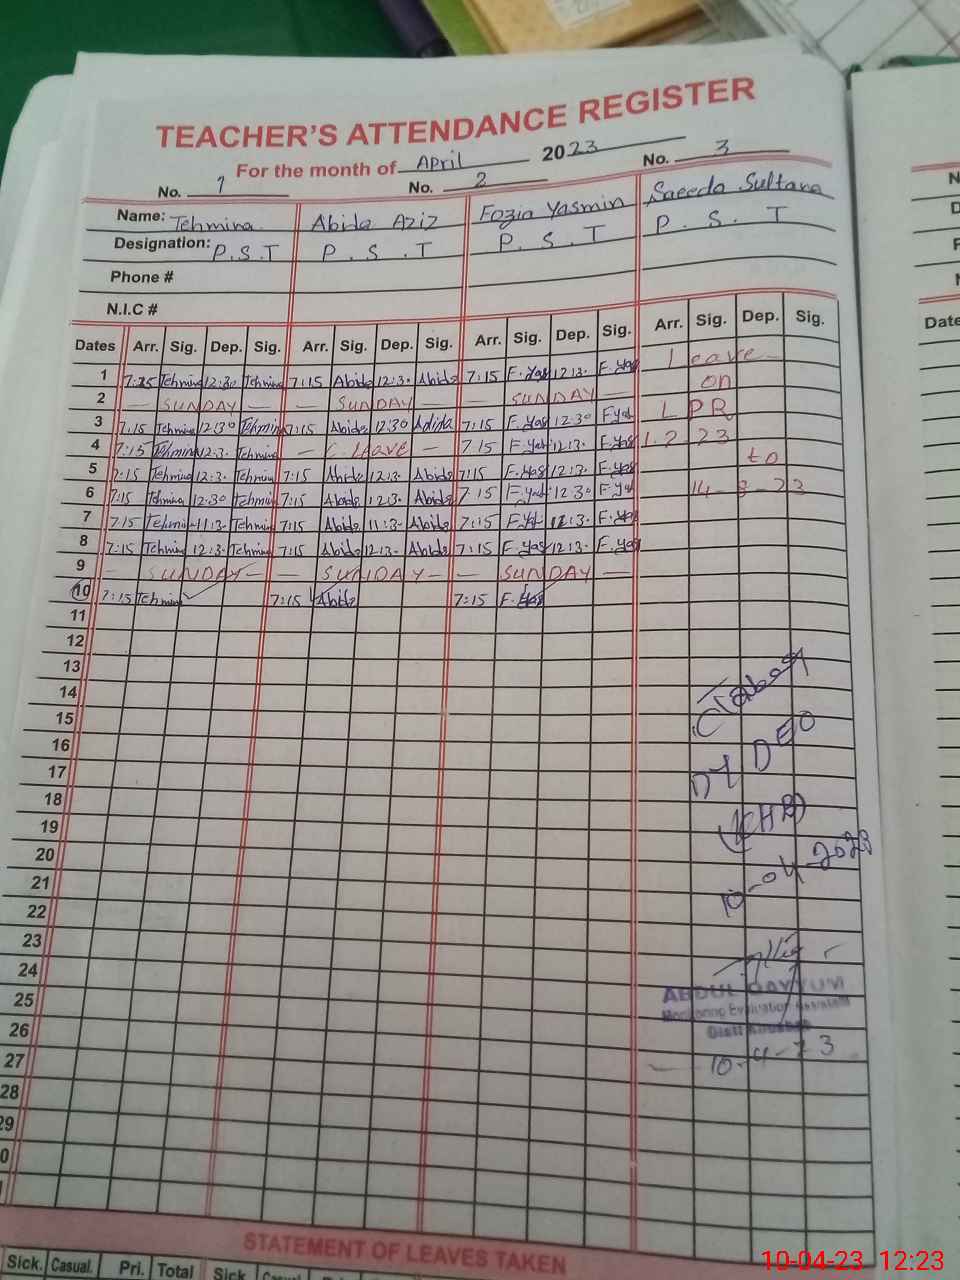 TEACHER'S ATTENDANCE REGISTER
For the month of April 2023
No. 1 No. 2 No. 3
Name: Tehmina Abida Aziz Fozia Yasmin Saeeda Sultana
Designation: P.S.T P.S.T P.S.T P.S.T
Phone #
N.I.C #
Dates Arr. Sig. Dep. Sig. Arr. Sig. Dep. Sig. Arr. Sig. Dep. Sig. Arr. Sig. Dep. Sig.
1 7:15 Tehmina 12:30 Tehmina 7:15 Abida 12:30 Abida 7:15 F.Yas 12:3- F.Yas Leave
2 — SUNDAY — — SUNDAY — — SUNDAY — on
3 7:15 Tehmina 12:30 Tehmina 7:15 Abida 12:30 Abida 7:15 F.Yas 12:30 F.Yas LPR
4 7:15 Tehmina 12:3- Tehmina — C.leave — 7:15 F.Yas 12:3- F.Yas 1.2.23
5 7:15 Tehmina 12:3- Tehmina 7:15 Abida 12:3- Abida 7:15 F.Yas 12:3- F.Yas to
6 7:15 Tehmina 12:30 Tehmina 7:15 Abida 12:3- Abida 7:15 F.Yas 12:30 F.Yas 14-8-23
7 7:15 Tehmina 11:3- Tehmina 7:15 Abida 11:3- Abida 7:15 F.Yas 11:3- F.Yas
8 7:15 Tehmina 12:3- Tehmina 7:15 Abida 12:3- Abida 7:15 F.Yas 12:3- F.Yas
9 — SUNDAY — — SUNDAY — — SUNDAY —
10 7:15 Tehmina 7:15 Abida 7:15 F.Yas
11
12
13
14
15
16
17
18
19
20
21
22
23
24
25
26
27
28
29
DY DEO
(KHB)
10-04-2023
ABDUL QAYYUM
Monitoring Evaluation Assistant
10-4-23
STATEMENT OF LEAVES TAKEN
Sick. Casual. Pri. Total Sick
Dates
10-04-23 12:23